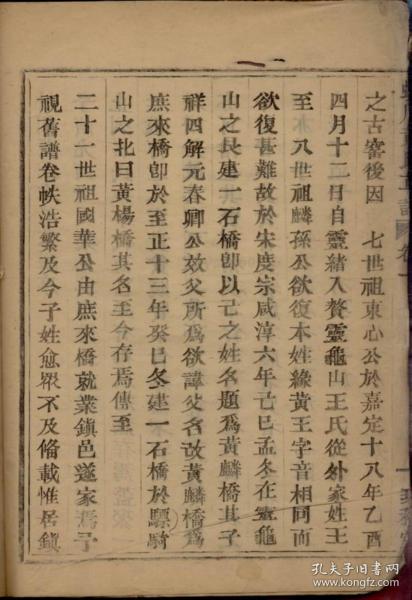 之古窑後因　七世祖東心公於嘉定十八年乙酉
四月十二日自靈緒入贅靈龜山王氏從外家姓王
至木八世祖麟孫公欲復本姓緣黃王字音相同而
欲復甚難故於宋度宗咸淳六年己巳孟冬在靈龜
山之長建一石橋卽以己之姓名題爲黃麟橋其子
祥四解元春卿公效父所爲欲諱父名改黃麟橋爲
庶來橋卽於至正十三年癸巳冬建一石橋於驃騎
山之北曰黃楊橋其名至今存焉傳至
二十一世祖國華公由庶來橋就業鎮邑遂家焉予
視舊譜卷帙浩繁及今子姓愈眾不及備載惟居鎮
孔夫子旧书网
www.kongfz.com